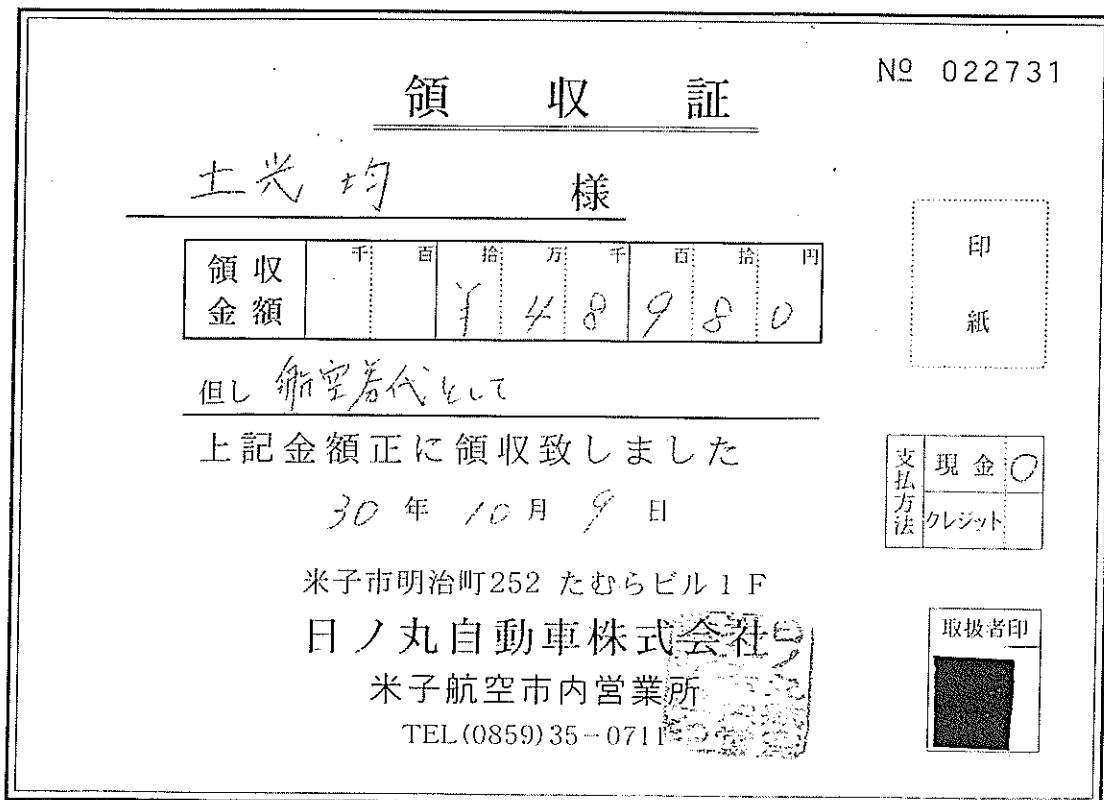 № 022731
領収証
土光 均 様
領収金額
千 百 拾 万 千 百 拾 円
¥ 4 8 9 8 0
但し 航空券代として
上記金額正に領収致しました
30 年 10 月 9 日
印紙
支払方法
現金 ○
クレジット
米子市明治町252 たむらビル1F
日ノ丸自動車株式会社
米子航空市内営業所
TEL(0859)35-0711
取扱者印